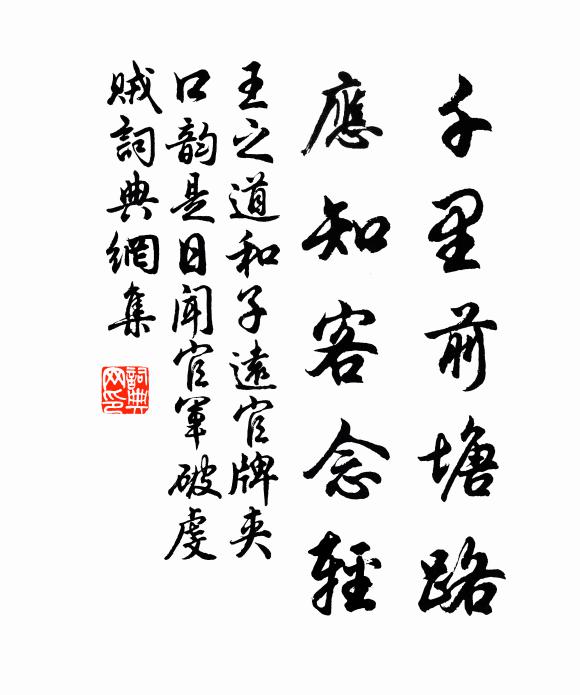 千里前塘路
應知客念輕
王之道和子遠官牌夹
口韵是日聞官軍破虔
賊詞典網集
詞典
网印